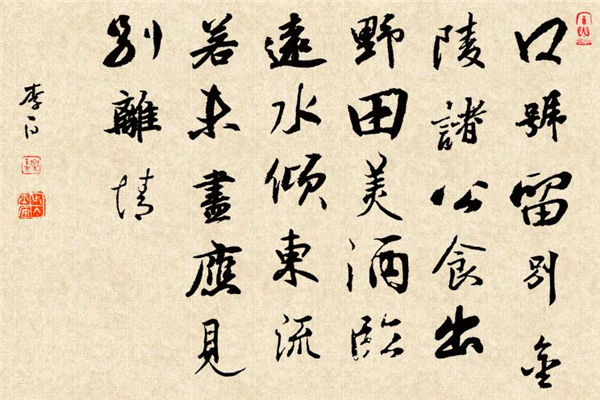 口號留别金
陵諸公食出
野田美酒臨
遠水傾東流
若未盡應見
别離情
李白